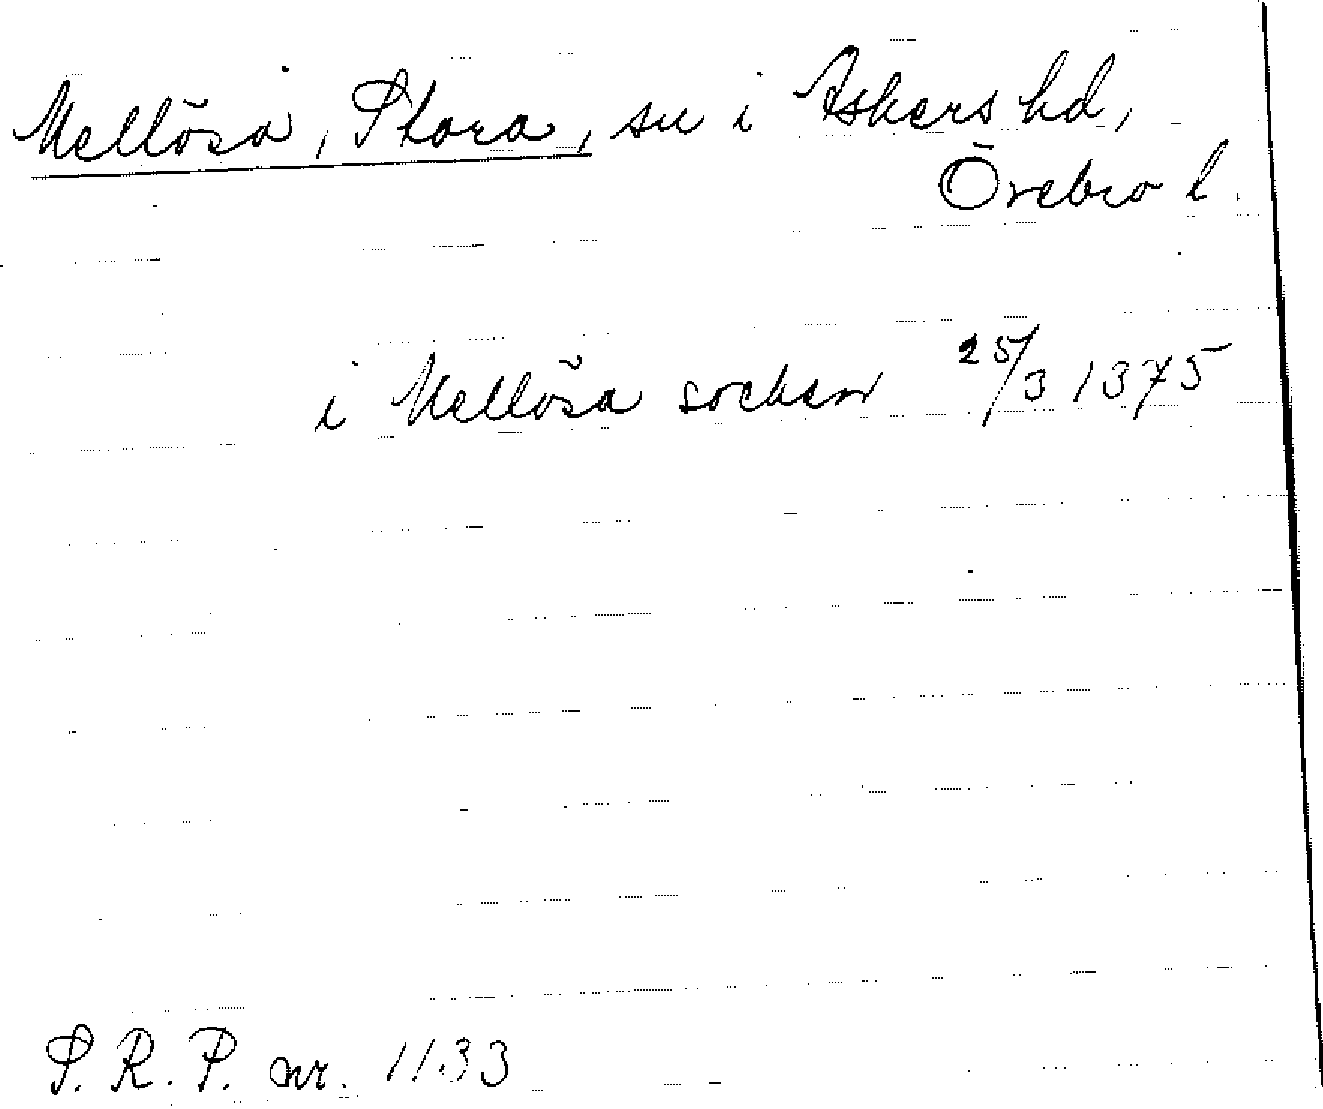 Mellösa, Stora, sn i Askers hd,
Örebro l.
i Mellösa socken 25/3 1375
S. R. P. nr. 1133